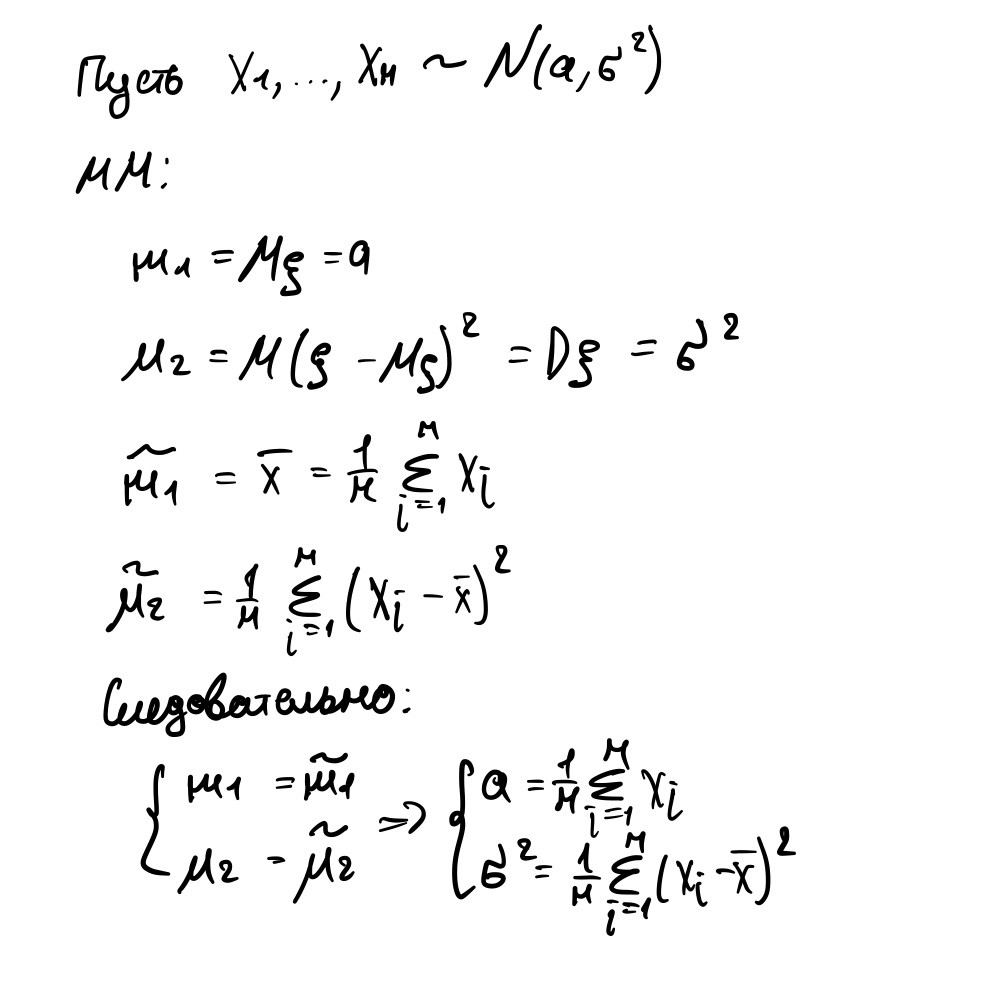 Пусть X₁, ..., Xₙ ~ N(a, σ²)
ММ:
m₁ = Mξ = a
μ₂ = M(ξ - Mξ)² = Dξ = σ²
m̃₁ = x̄ = 1/n ∑ᵢ₌₁ⁿ Xᵢ
μ̃₂ = 1/n ∑ᵢ₌₁ⁿ (Xᵢ - x̄)²
Следовательно:
{ m₁ = m̃₁ => { a = 1/n ∑ᵢ₌₁ⁿ Xᵢ
μ₂ = μ̃₂ σ² = 1/n ∑ᵢ₌₁ⁿ (Xᵢ - x̄)²